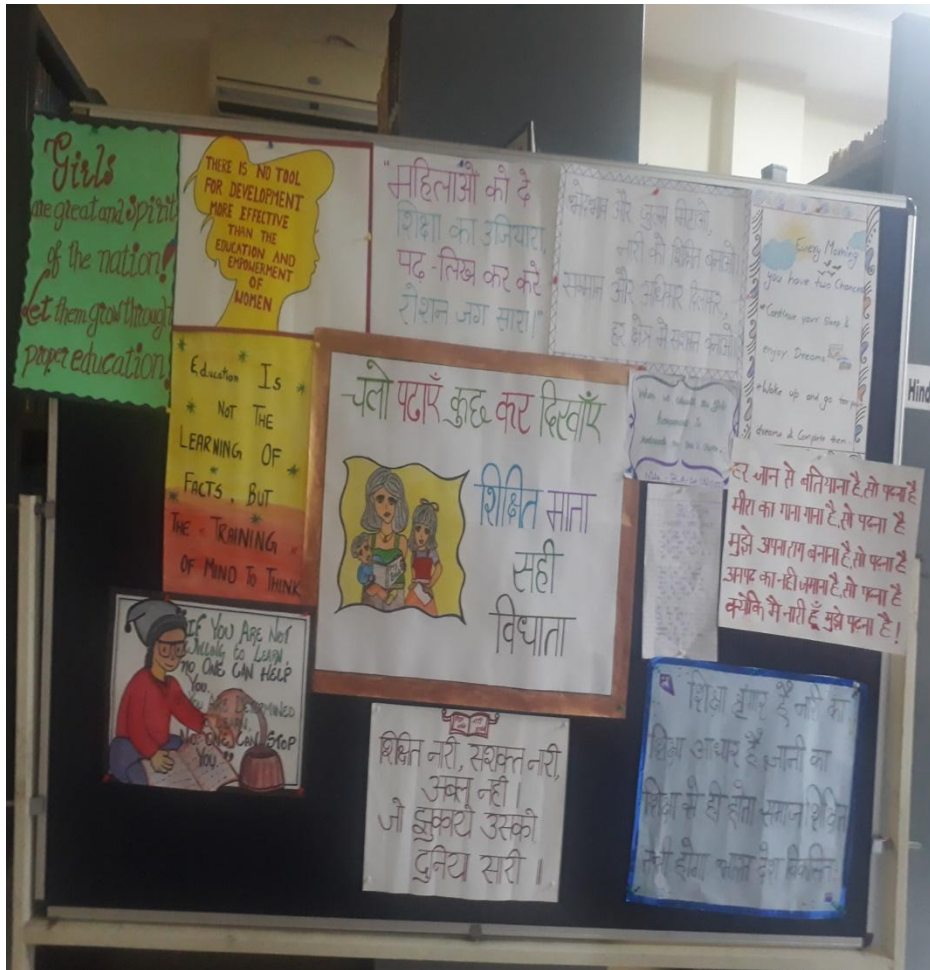 Girls
are great and spirit
of the nation!
Let them grow through
proper education!
THERE IS NO TOOL
FOR DEVELOPMENT
MORE EFFECTIVE
THAN THE
EDUCATION AND
EMPOWERMENT
OF
WOMEN
"महिलाओ को दे
शिक्षा का उजियारा
पढ़-लिख कर करे
रोशन जग सारा।"
और जुल्म मिटाओ,
नारी को शिक्षित बनाओ।
सम्मान और अधिकार दिलाकर,
हर क्षेत्र में बनाओ।
Every Morning
you have two Chances
Continue your Sleep &
enjoy Dreams
Wake up and go for your
dreams & Complete them.
Education Is
NOT THE
LEARNING OF
FACTS, BUT
THE TRAINING
OF MIND TO THINK
चलो पढाएँ कुछ कर दिखाएँ
शिक्षित माता
सही
विधाता
When we educate the girls
हर जान से बतियाना है, सो पढना है
मीरा का गाना गाना है, सो पढना है
मुझे अपना राग बनाना है, सो पढना है
अनपढ का नही जमाना है, सो पढना है
क्योकि मै नारी हूँ मुझे पढना है!
IF YOU ARE NOT
WILLING TO LEARN
NO ONE CAN HELP
YOU.
YOU ARE DETERMINED
TO LEARN
NO ONE CAN STOP
YOU."
शिक्षित नारी, सशक्त नारी,
अबल नही।
जो झुकाये उसको
दुनिय सारी।
शिक्षा है नारी का
शिक्षा आधार है ज्ञानी का
शिक्षा से ही होता समाज शिक्षित
तभी होगा देश विकसित
Hind